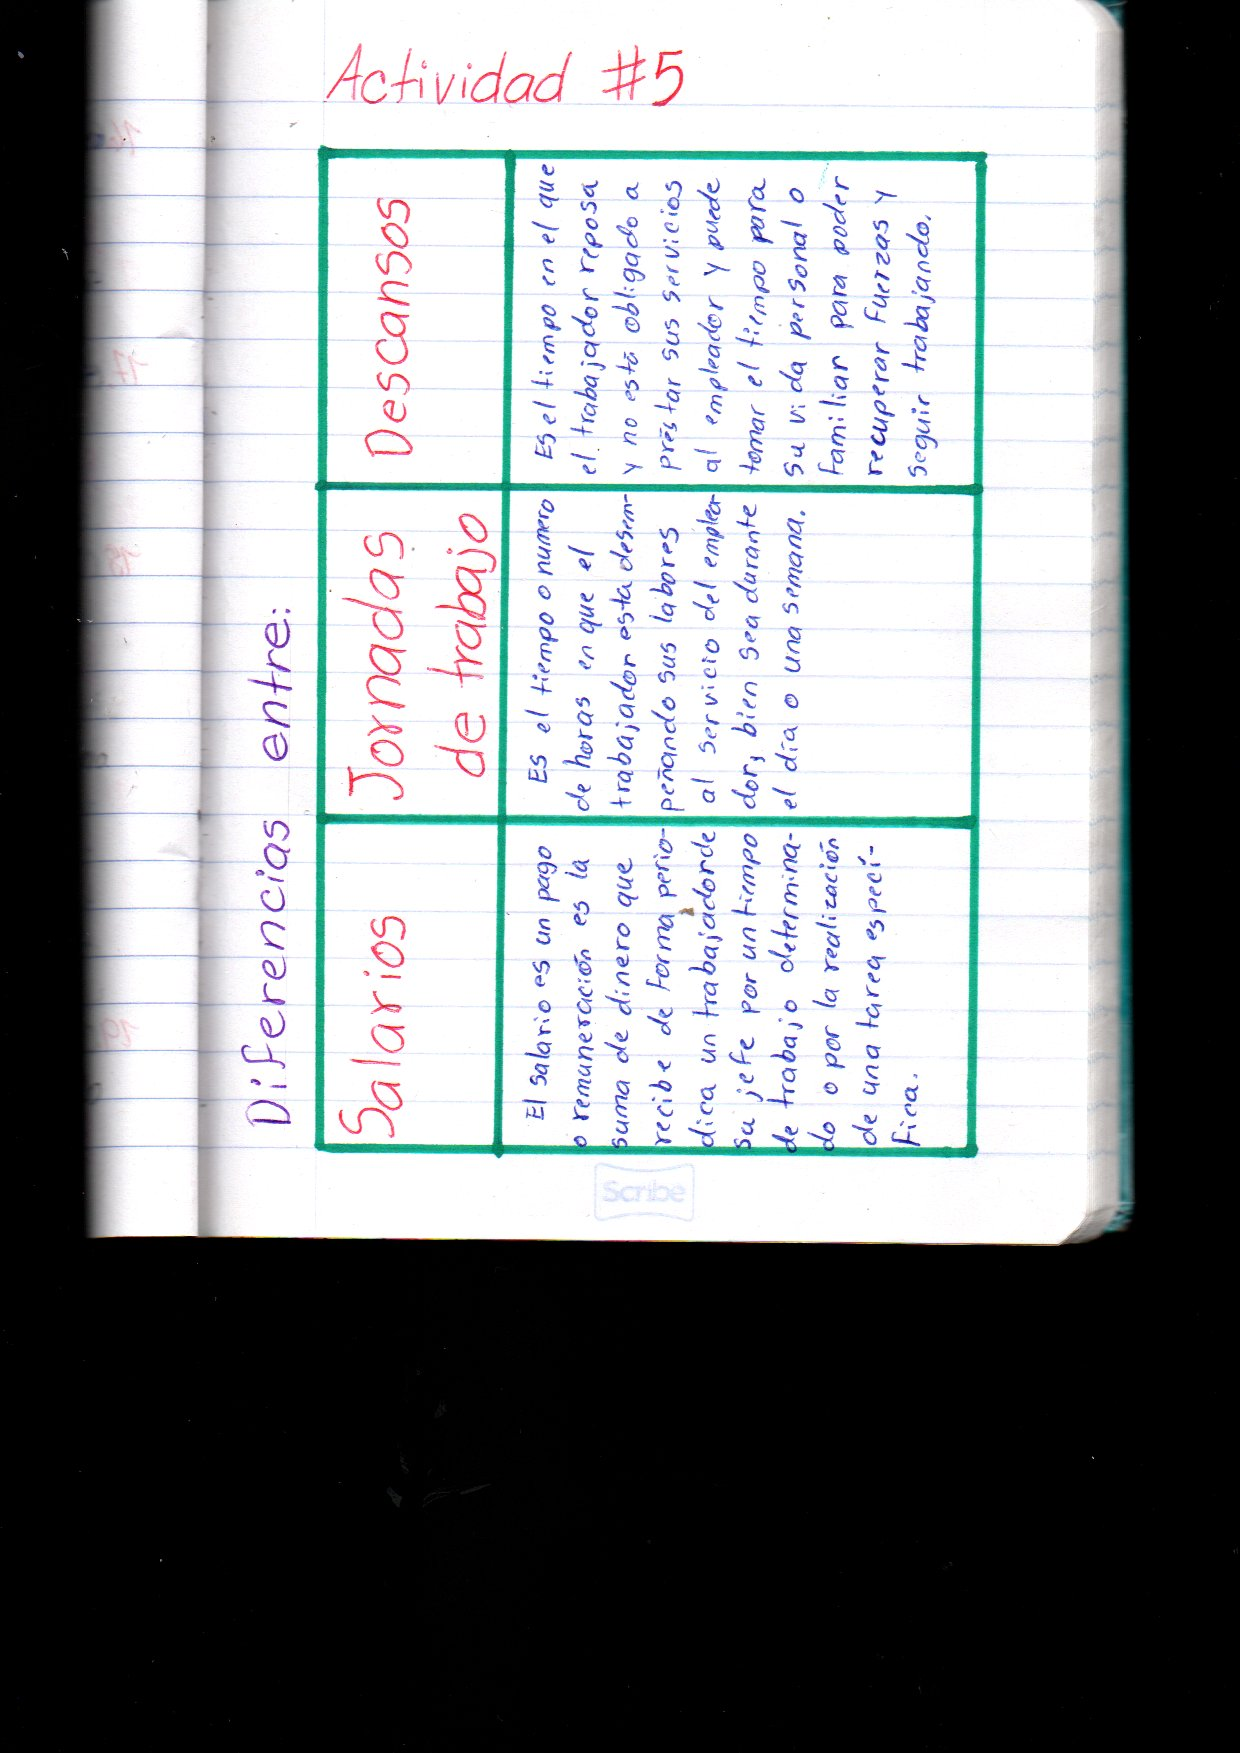 Actividad #5
Diferencias entre:
Salarios
El salario es un pago
o remuneración es la
suma de dinero que
recibe de forma perio-
dica un trabajador de
su jefe por un tiempo
de trabajo determina-
do o por la realización
de una tarea especí-
fica.
Jornadas
de trabajo
Es el tiempo o numero
de horas en que el
trabajador esta desem-
peñando sus labores
al servicio del emplea-
dor, bien sea durante
el día o una semana.
Descansos
Es el tiempo en el que
el trabajador reposa
y no está obligado a
prestar sus servicios
al empleador y puede
tomar el tiempo para
su vida personal o
familiar para poder
recuperar fuerzas y
seguir trabajando.
Scribe